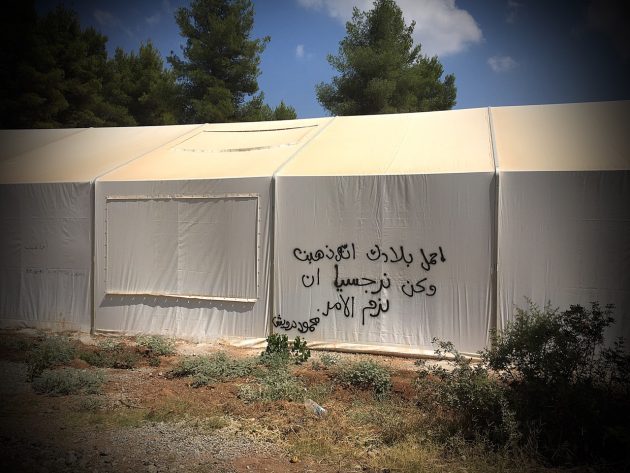 احمل بلادك انّا ذهبت
وكن نرجسيا ان
لزم الامر
محمود درويش